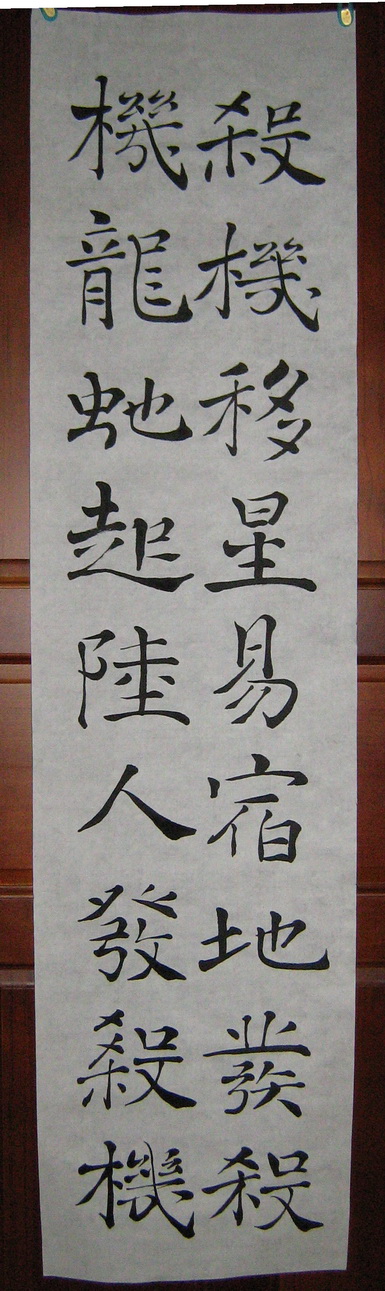 殺機移星易宿地發殺
機龍虵起陸人發殺機